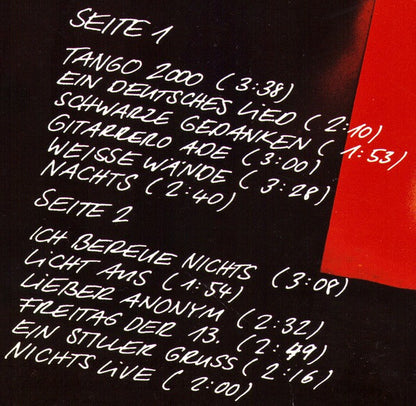 SEITE 1
TANGO 2000 (3:38)
EIN DEUTSCHES LIED (2:10)
SCHWARZE GEDANKEN (1:53)
GITARRERO ADE (3:00)
WEISSE WÄNDE (3:28)
NACHTS (2:40)
SEITE 2
ICH BEREUE NICHTS (3:08)
LICHT AUS (1:54)
LIEBER ANONYM (2:32)
FREITAG DER 13. (2:49)
EIN STILLER GRUSS (2:16)
NICHTS LIVE (2:00)